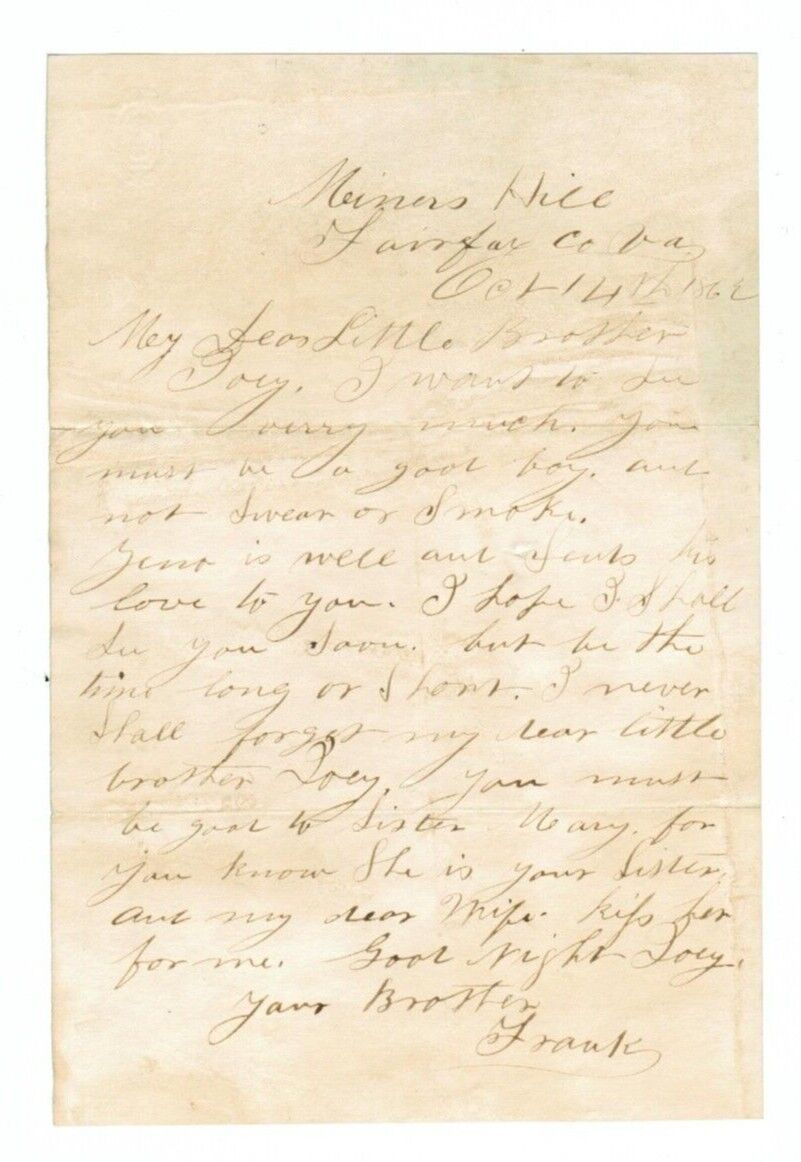 Miners Hill
Fairfax Co Va
Oct 14th 1862
My Dear Little Brother
Joey. I want to see
you verry much. You
must be a good boy. and
not Swear or Smoke.
is well and Sends his
love to you. I hope I Shall
See you Soon. but be the
time long or Short. I never
Shall forget my dear little
brother Joey. you must
be good to Sister Mary. for
you know She is your Sister.
and my dear Wife. Kiss her
for me. Good Night Joey.
Your Brother
Frank